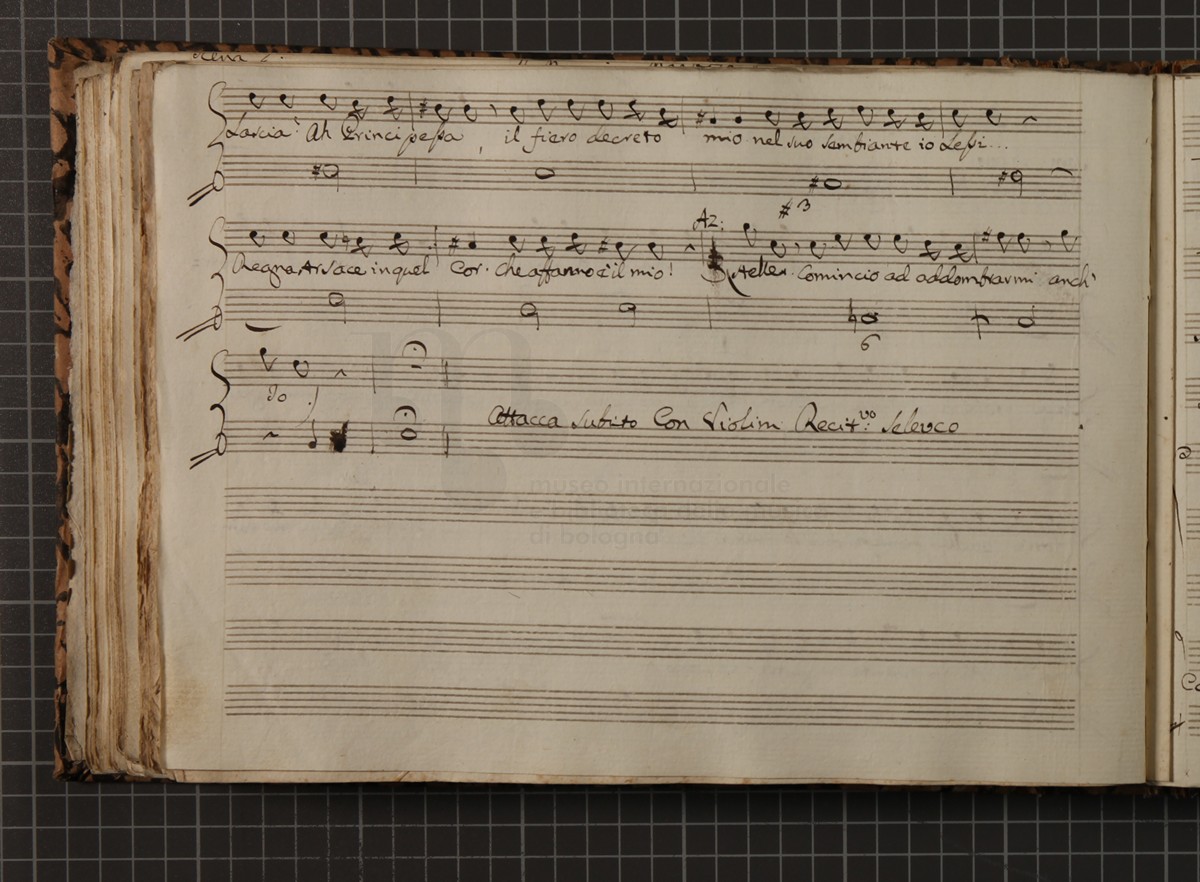 Lascia? Ah Principessa, il fiero decreto mio nel suo sembiante io Lessi...
# 3
Az:
Regna Arsace in quel Cor. che affanno è il mio! Stelle. Comincio ad addombrarmi anch'
6
Io
Attacca Subito Con Violini Recit:vo Seleuco
museo internazionale
e biblioteca della musica
di bologna